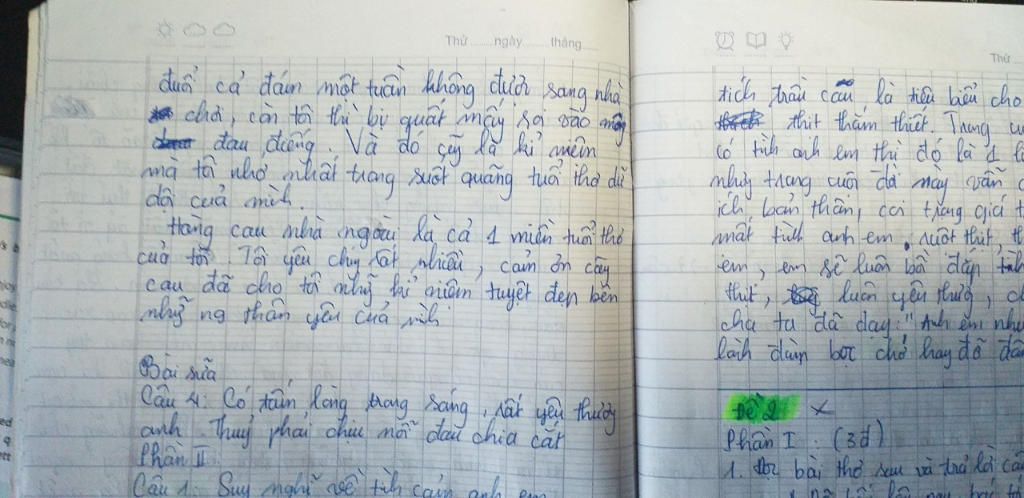 Thứ ......ngày ......tháng......
đuổi cả đám một tuần không được sang nhà
chơi, còn tôi thì bị quất mấy roi vào mông
đau điếng. Và đó cũg là kỉ niệm
mà tôi nhớ nhất trong suốt quãng tuổi thơ dữ
dội của mình.
Hàng cau nhà ngoại là cả 1 miền tuổi thơ
của tôi. Tôi yêu chúg rất nhiều, cảm ơn cây
cau đã cho tôi nhữg kỉ niệm tuyệt đẹp bên
nhữg ng thân yêu của mình
Bài sửa
Câu 4: Có tấm lòng trong sáng, rất yêu thương
anh Thuỷ phải chịu nỗi đau chia cắt
Phần II
Câu 1: Suy nghĩ về tình cảm anh em
Thứ
tích trầu cau là tiêu biểu cho
thịt thắm thiết. Trong cu
có tình anh em thì đó là 1
nhưg trong cuộc đời này vẫn
ích bản thân, coi trọng giá t
mất tình anh em ruột thịt, t
em, em sẽ luôn bồi đắp tình
thịt, luôn yêu thươg, ch
cha ta đã dạy: "Anh em như
lành đùm bọc dở hay đỡ đần
Đề 2
Phần I: (3đ)
1. Đọc bài thơ sau và trả lời câu